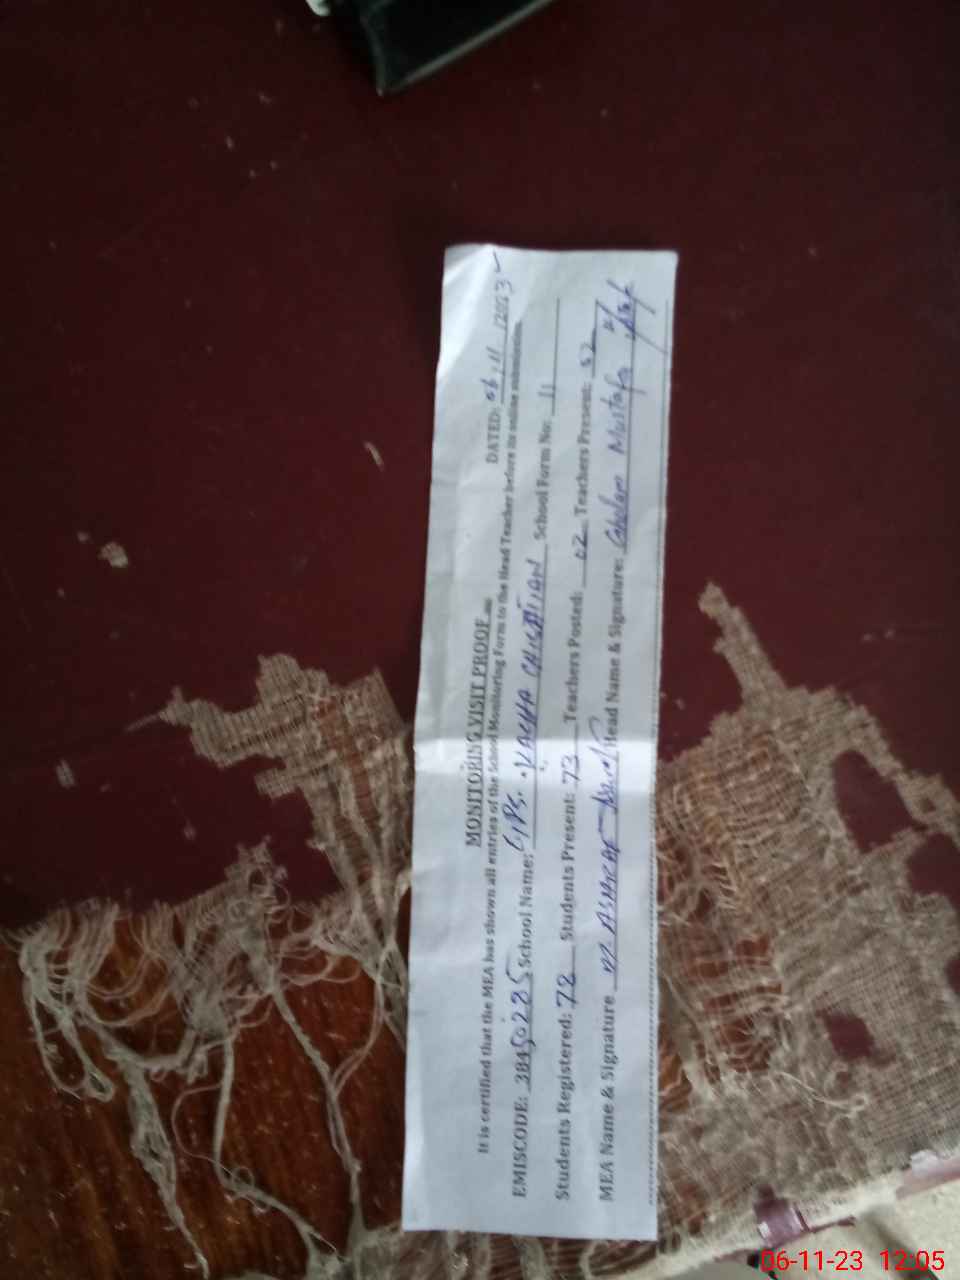 MONITORING VISIT PROOF DATED: 06.11/2023
It is certified that the MEA has shown all entries of the School Monitoring Form to the Head Teacher before its online submission.
EMISCODE: 38450285 School Name: GPS. KACHA School Form No: 11
Students Registered: 78 Students Present: 73 Teachers Posted: 02 Teachers Present: 02
MEA Name & Signature M ASHRAF Head Name & Signature: Ghulam Mustafa
06-11-23 12:05